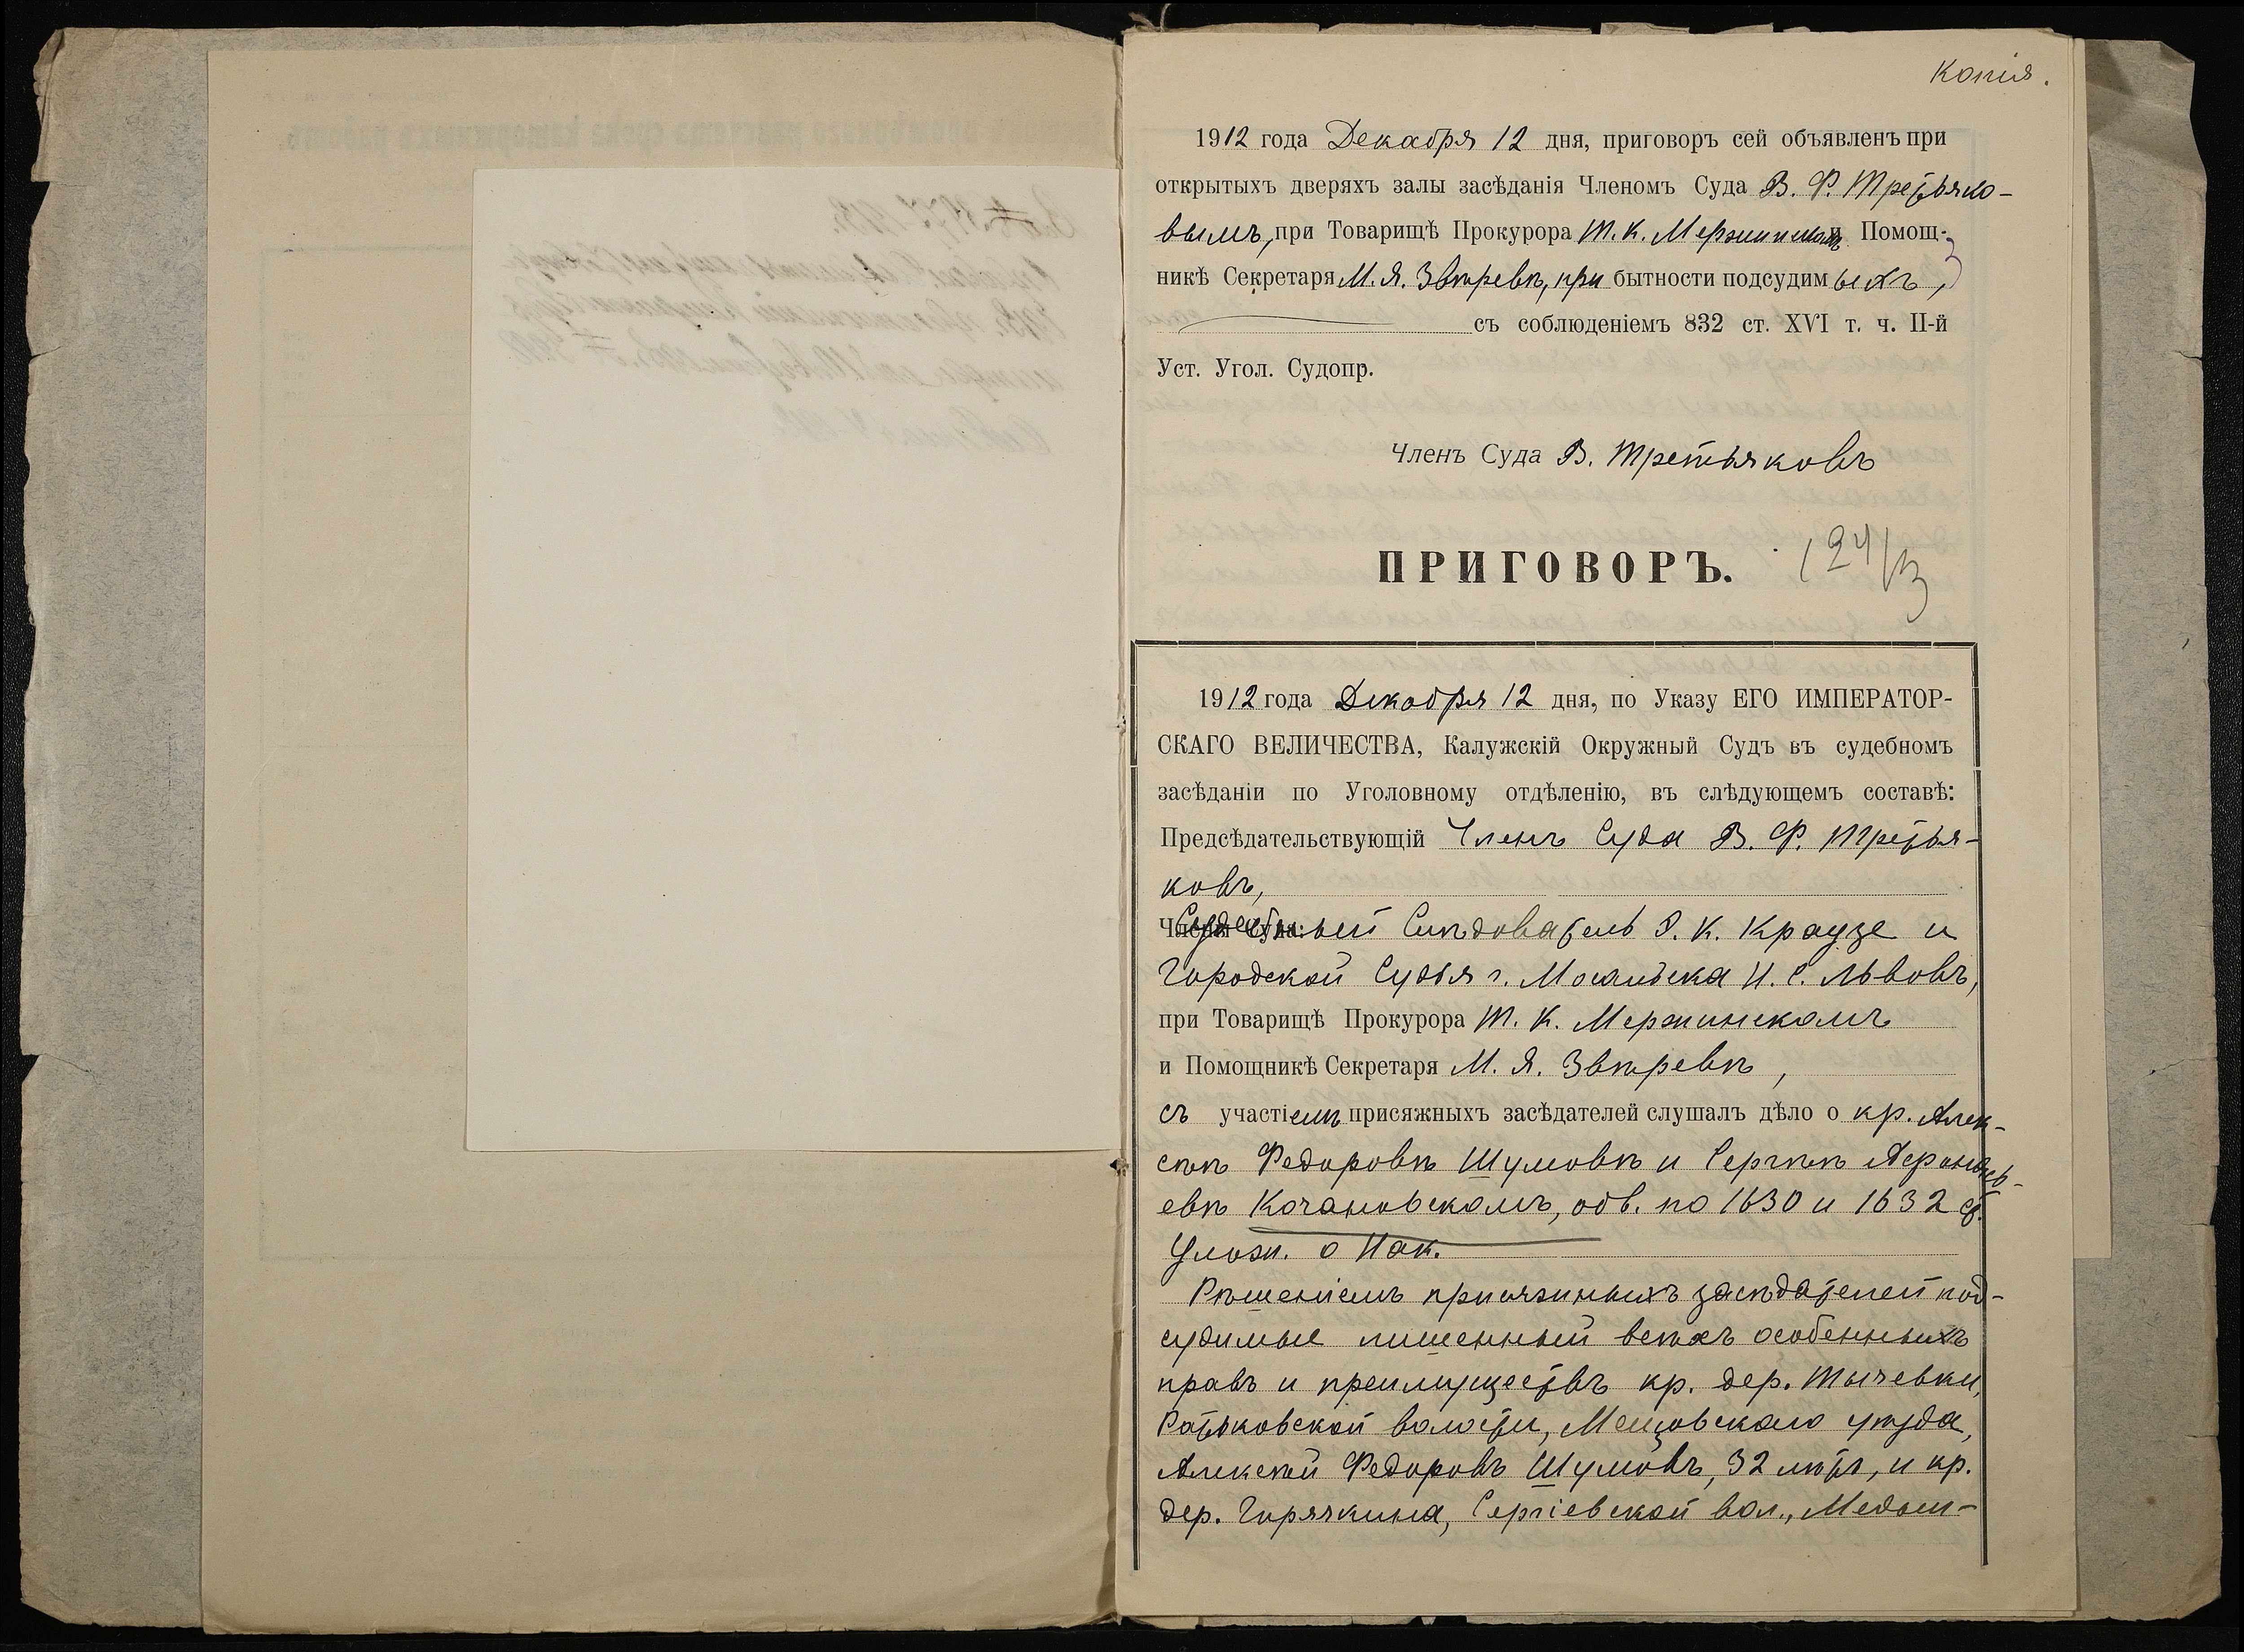 Копія.
1912 года Декабря 12 дня, приговоръ сей объявленъ при
открытыхъ дверяхъ залы засѣданія Членомъ Суда В. Ф. Третьяко-
вымъ, при Товарищѣ Прокурора Т. К. Мержинскомъ и Помощ-
никѣ Секретаря М. Я. Звѣревѣ, при бытности подсудимыхъ,
съ соблюденіемъ 832 ст. XVI т. ч. II-й
Уст. Угол. Судопр.
Членъ Суда В. Третьяковъ
ПРИГОВОРЪ.
1912 года Декабря 12 дня, по Указу ЕГО ИМПЕРАТОР-
СКАГО ВЕЛИЧЕСТВА, Калужскій Окружный Судъ въ судебномъ
засѣданіи по Уголовному отдѣленію, въ слѣдующемъ составѣ:
Предсѣдательствующій Членъ Суда В. Ф. Третья-
ковъ,
Члены Суда: Судебный Слѣдователь Э. К. Краузе и
Городской Судья г. Мосальска И. С. Львовъ,
при Товарищѣ Прокурора Т. К. Мержинскомъ
и Помощникѣ Секретаря М. Я. Звѣревѣ,
съ участіемъ присяжныхъ засѣдателей слушалъ дѣло о кр. Алек-
сѣѣ Федоровѣ Шумовѣ и Сергѣѣ Афанась-
евѣ Кочановскомъ, обв. по 1630 и 1632 ст.
Улож. о Нак.
Рѣшеніемъ присяжныхъ засѣдателей под-
судимые лишенный всѣхъ особенныхъ
правъ и преимуществъ кр. дер. Тычевки,
Ратьковской волости, Мещовскаго уѣзда,
Алексѣй Федоровъ Шумовъ, 32 лѣтъ, и кр.
дер. Горячкина, Сергіевской вол., Медын-